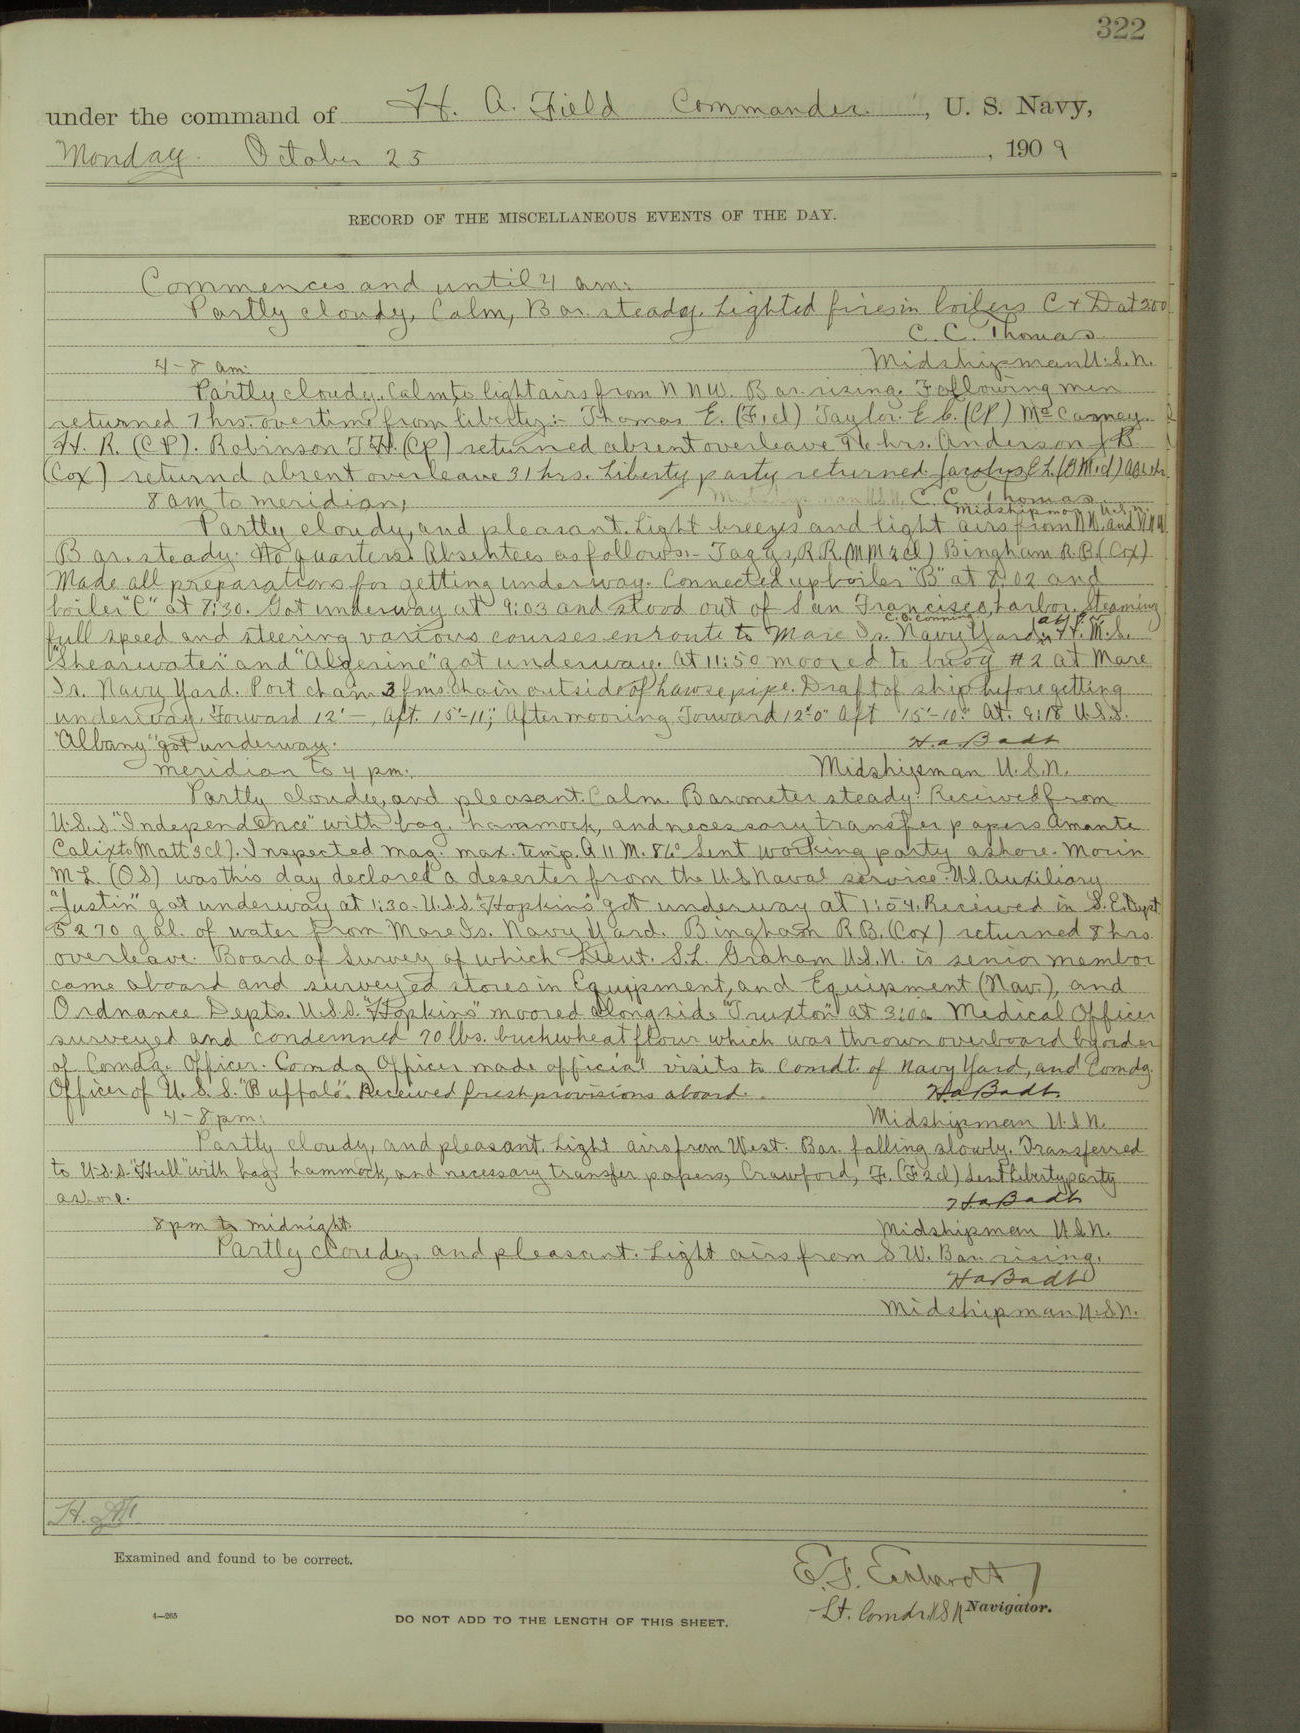 322
under the command of H. A. Field Commander, U. S. Navy,
Monday. October 25, 1909
RECORD OF THE MISCELLANEOUS EVENTS OF THE DAY.
Commences and until 4 am:
Partly cloudy, Calm, Bar. steady. Lighted fires in boilers C & D at 200
C. C. Thomas
Midshipman U.S.N.
4-8 am:
Partly cloudy. Calm to light airs from N NW. Bar. rising. Following men
returned 7 hrs. overtime from liberty:- Thomas E. (F1cl) Taylor E. C. (CP) McCamey
H. R. (CP). Robinson T.H. (CP) returned absent overleave 96 hrs. Anderson J B
(Cox) returnd absent overleave 31 hrs. Liberty party returned. Jacobys C L (BM1cl)
8 am to meridian, C. C. Thomas
Midshipman U.S.N.
Partly cloudy, and pleasant. Light breezes and light airs from NW. and NNW
Bar. steady. No quarters. Absentees as follows:- Taggs, R.R. (MM2cl) Bingham R.B. (Cox)
Made all preparations for getting underway. Connected up boiler "B" at 8:02 and
boiler "C" at 7:30. Got underway at 9:03 and stood out of San Francisco, harbor. Steaming
C.O. conning
full speed and steering various courses enroute to Mare Is. Navy Yard. H. M. S.
"Shearwater" and "Algerine" got underway. At 11:50 moored to buoy #2 at Mare
Is. Navy Yard. Port chain 3 fms. chain outside of hawse pipe. Draft of ship before getting
underway, Forward 12'—, Aft. 15'-11"; After mooring Forward 12'0" Aft 15'-10". At. 9:18 U.S.S.
"Albany" got underway. H. A. Badt
meridian to 4 pm: Midshipman U.S.N.
Partly cloudy, and pleasant. Calm. Barometer steady. Received from
U.S.S. "Independence" with bag, hammock, and necessary transfer papers Amante
Calixto Matt 3cl). Inspected mag. max. temp. A 11 M. 86° Sent working party ashore. Morin
M L. (OS) was this day declared a deserter from the U.S Naval service. U.S. Auxiliary
"Justin" got underway at 1:30. U.S.S. "Hopkins" got underway at 1:54. Received in S. E. Dept
5270 gal. of water from Mare Is. Navy Yard. Bingham R.B. (Cox) returned 8 hrs
overleave. Board of Survey of which Lieut. S.L. Graham U.S.N. is senior member
came aboard and surveyed stores in Equipment, and Equipment (Nav.), and
Ordnance Depts. U.S.S. "Hopkins" moored alongside "Truxton" at 3:00. Medical Officer
surveyed and condemned 70 lbs. buckwheat flour which was thrown overboard by order
of Comdg. Officer. Comdg Officer made official visits to Comdt. of Navy Yard, and Comdg.
Officer of U. S. S. "Buffalo". Received fresh provisions aboard. H. A. Badt
4-8 pm: Midshipman U.S.N.
Partly cloudy, and pleasant. Light airs from West. Bar. falling slowly. Transferred
to U.S.S. "Hull" with bag, hammock, and necessary transfer papers, Crawford, F. (F2cl) Sent liberty party
ashore. H. A. Badt
8 pm to midnight. Midshipman U.S.N.
Partly cloudy, and pleasant. Light airs from S W. Bar. rising.
H A Badt
Midshipman U.S.N.
Examined and found to be correct.
Lt. Comdr. U S N Navigator.
4—265
DO NOT ADD TO THE LENGTH OF THIS SHEET.